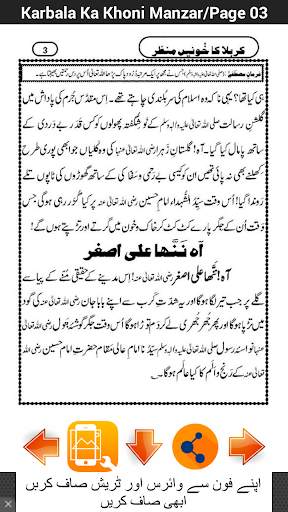 Karbala Ka Khoni Manzar/Page 03
3
کربلا کا خُونیں منظر
فرمانِ مصطفےٰ
ہی کیا تھا؟ یہی نا کہ وہ اسلام کی سربلندی چاہتے تھے۔ اس مقدّس جُرم کی پاداش میں
گلشنِ رسالت صلی اللہ تعالیٰ علیہ والہ وسلم کے نوشگفتہ پھولوں کو کس قدر بے دَردی کے
ساتھ پامال کیا گیا۔ آہ! گلستانِ زہرا رضی اللہ تعالیٰ عنہا کی وہ کلیاں جو ابھی پوری طرح
کھلنے بھی نہ پائی تھیں ان کو کیسی بے رَحمی و سَفّا کی کے ساتھ گھوڑوں کی ٹاپوں تلے
رَوندا گیا! اُس وقت سیّدُ الشُّہداء امام حسین رضی اللہ تعالیٰ عنہ پر کیا گزر رہی ہوگی جس
وَقت ان کے جگر پارے کٹ کٹ کر خاک و خون میں گرتے اور تڑپتے ہوں گے!
آہ نَنّھا علی اصغر
آہ! ننّھا علی اصغر رضی اللہ تعالیٰ عنہ! اس مدینے کے حقیقی مُنّے کے پیاسے
گلے پر جب تیر لگا ہوگا اور یہ شدّتِ کرب سے اپنے بابا جان رضی اللہ تعالیٰ عنہ کی گود میں
تڑپا ہوگا اور پھر جُھر جُھری لے کر دَم توڑا ہوگا اُس وقت جگر گوشۂ بتول رضی اللہ تعالیٰ
عنہا نواسۂ رسول صلی اللہ تعالیٰ علیہ والہ وسلم سیّدُ نا امامِ عالی مقام حضرتِ امام حسین رضی اللہ
تعالیٰ عنہ کے رَنج و اَلَم کا کیا عالَم ہوگا!
اپنے فون سے وائرس اور ٹریش صاف کریں
ابھی صاف کریں